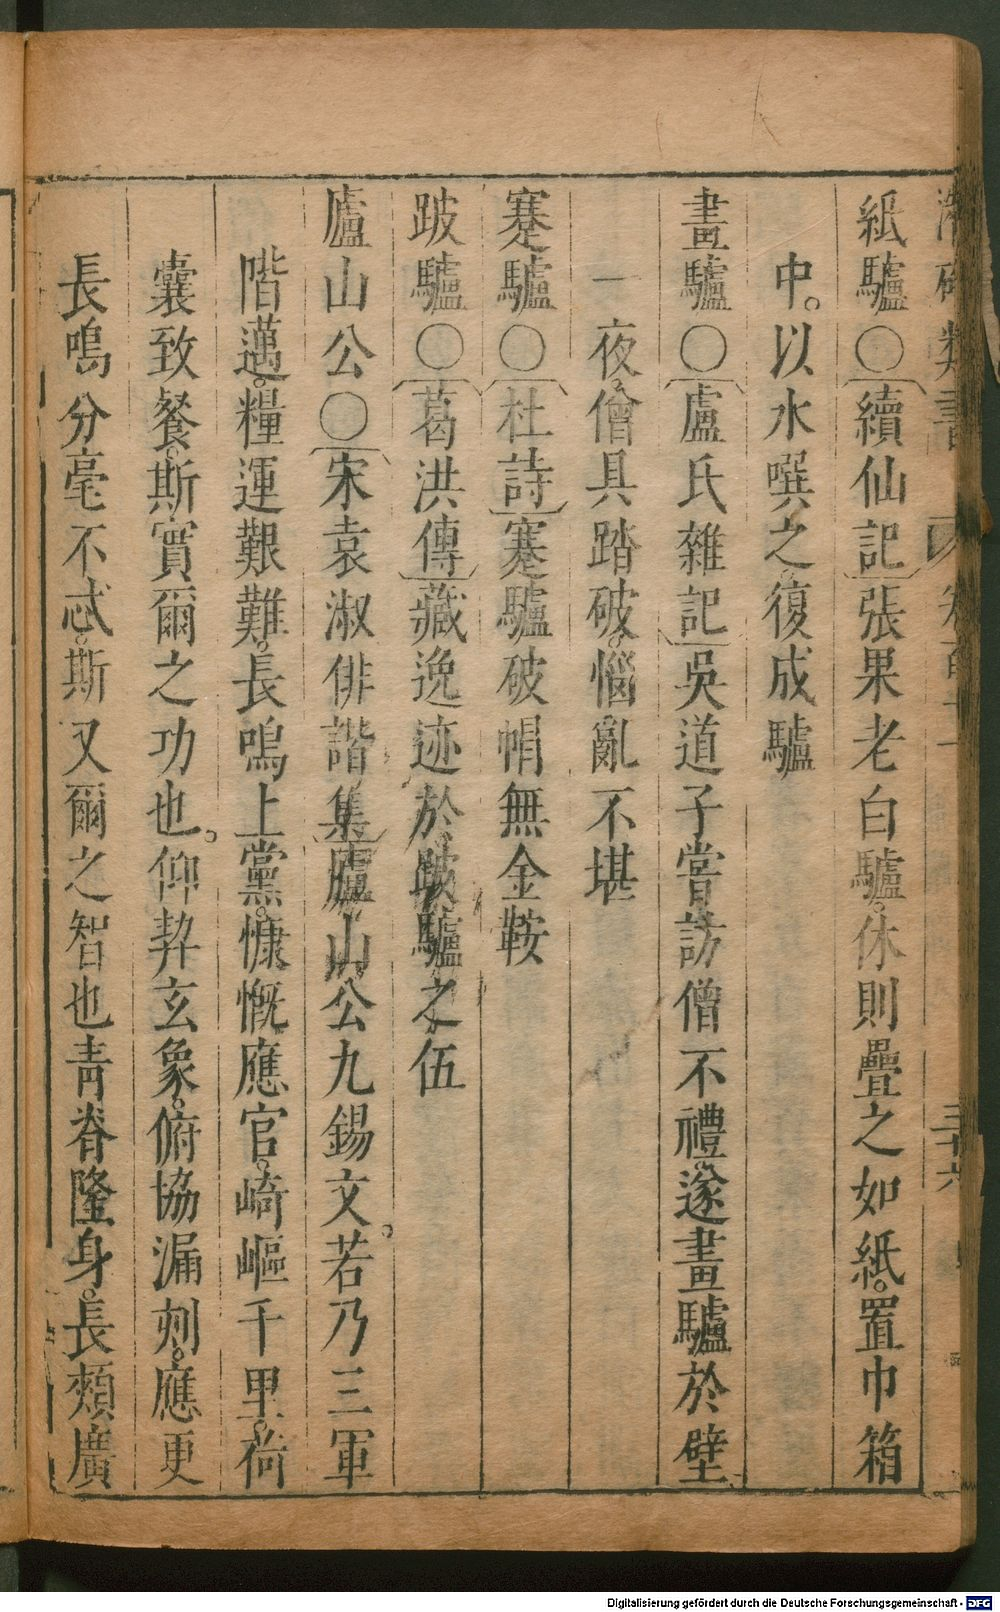 紙驢○續仙記張果老白驢。休則疊之如紙。置巾箱
中。以水噀之。復成驢
畫驢○盧氏雜記吳道子嘗訪僧不禮。遂畫驢於壁
一夜。僧具踏破。惱亂不堪
蹇驢○杜詩蹇驢破帽無金鞍
跛驢○葛洪傳藏逸迹於跛驢之伍
廬山公○宋袁淑俳諧集廬山公九錫文。若乃三軍
階邁。糧運艱難。長鳴上黨。慷慨應官。崎嶇千里。荷
囊致餐。斯實爾之功也。仰契玄象。俯協漏刻。應更
長鳴。分毫不忒。斯又爾之智也青脊隆身。長頰廣
類書
三十六
Digitalisierung gefördert durch die Deutsche Forschungsgemeinschaft - DFG